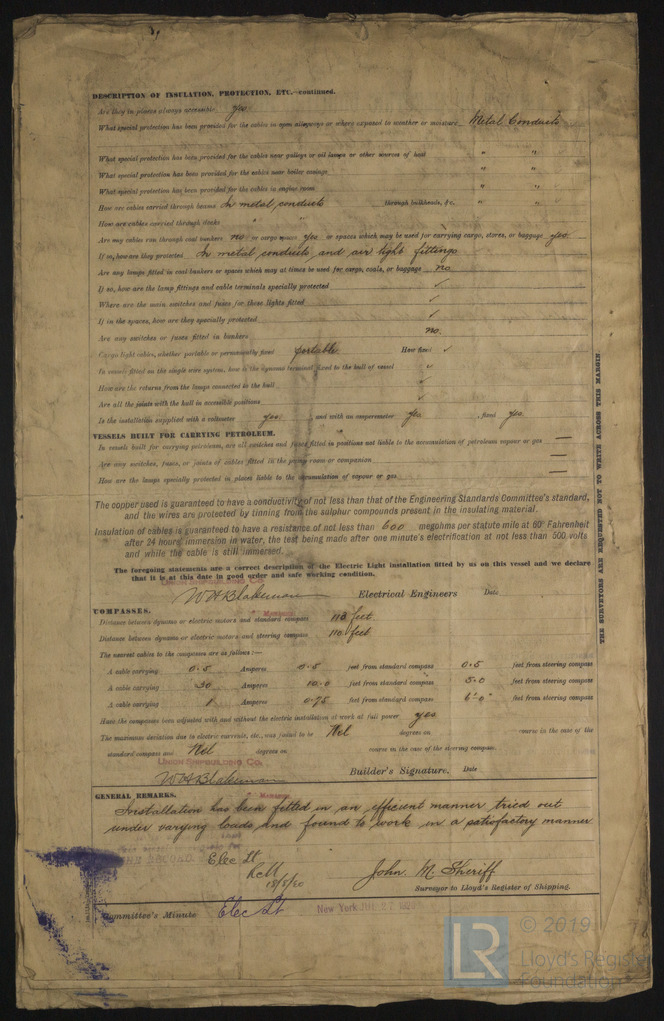 DESCRIPTION OF INSULATION, PROTECTION, ETC.—continued.
Are they in places always accessible yes
What special protection has been provided for the cables in open alleyways or where exposed to weather or moisture Metal Conduits
What special protection has been provided for the cables near galleys or oil lamps or other sources of heat " "
What special protection has been provided for the cables near boiler casings " "
What special protection has been provided for the cables in engine room " "
How are cables carried through beams In metal conduits through bulkheads, &c. " "
How are cables carried through decks " "
Are any cables run through coal bunkers no or cargo spaces yes or spaces which may be used for carrying cargo, stores, or baggage yes
If so, how are they protected In metal conduits and air tight fittings
Are any lamps fitted in coal bunkers or spaces which may at times be used for cargo, coals, or baggage no
If so, how are the lamp fittings and cable terminals specially protected ✓
Where are the main switches and fuses for these lights fitted ✓
If in the spaces, how are they specially protected ✓
Are any switches or fuses fitted in bunkers no.
Cargo light cables, whether portable or permanently fixed portable How fixed ✓
In vessels fitted on the single wire system, how is the dynamo terminal fixed to the hull of vessel ✓
How are the returns from the lamps connected to the hull ✓
Are all the joints with the hull in accessible positions ✓
Is the installation supplied with a voltmeter yes, and with an amperemeter Yes, fixed Yes
VESSELS BUILT FOR CARRYING PETROLEUM.
In vessels built for carrying petroleum, are all switches and fuses fitted in positions not liable to the accumulation of petroleum vapour or gas —
Are any switches, fuses, or joints of cables fitted in the pump room or companion —
How are the lamps specially protected in places liable to the accumulation of vapour or gas —
The copper used is guaranteed to have a conductivity of not less than that of the Engineering Standards Committee's standard,
and the wires are protected by tinning from the sulphur compounds present in the insulating material.
Insulation of cables is guaranteed to have a resistance of not less than 600 megohms per statute mile at 60° Fahrenheit
after 24 hours' immersion in water, the test being made after one minute's electrification at not less than 500 volts
and while the cable is still immersed.
The foregoing statements are a correct description of the Electric Light installation fitted by us on this vessel and we declare
that it is at this date in good order and safe working condition.
W A Blakeman Electrical Engineers Date
COMPASSES.
Manager
Distance between dynamo or electric motors and standard compass 110 feet
Distance between dynamo or electric motors and steering compass 110 feet
The nearest cables to the compasses are as follows:—
A cable carrying 0.5 Amperes 0.5 feet from standard compass 0.5 feet from steering compass
A cable carrying 30 Amperes 10.0 feet from standard compass 5.0 feet from steering compass
A cable carrying 1 Amperes 0.75 feet from standard compass 6'0" feet from steering compass
Have the compasses been adjusted with and without the electric installation at work at full power yes
The maximum deviation due to electric currents, etc., was found to be Nil degrees on course in the case of the
standard compass and Nil degrees on course in the case of the steering compass.
UNION SHIPBUILDING CO.
W A Blakeman Builder's Signature. Date
Manager
GENERAL REMARKS.
Installation has been fitted in an efficient manner tried out
under varying loads and found to work in a satisfactory manner
Elec Lt
18/5/20
John M. Sheriff
Surveyor to Lloyd's Register of Shipping.
Committee's Minute Elec Lt New York
THE SURVEYORS ARE REQUESTED NOT TO WRITE ACROSS THIS MARGIN.
© 2019
LR
Lloyd's Register
Foundation